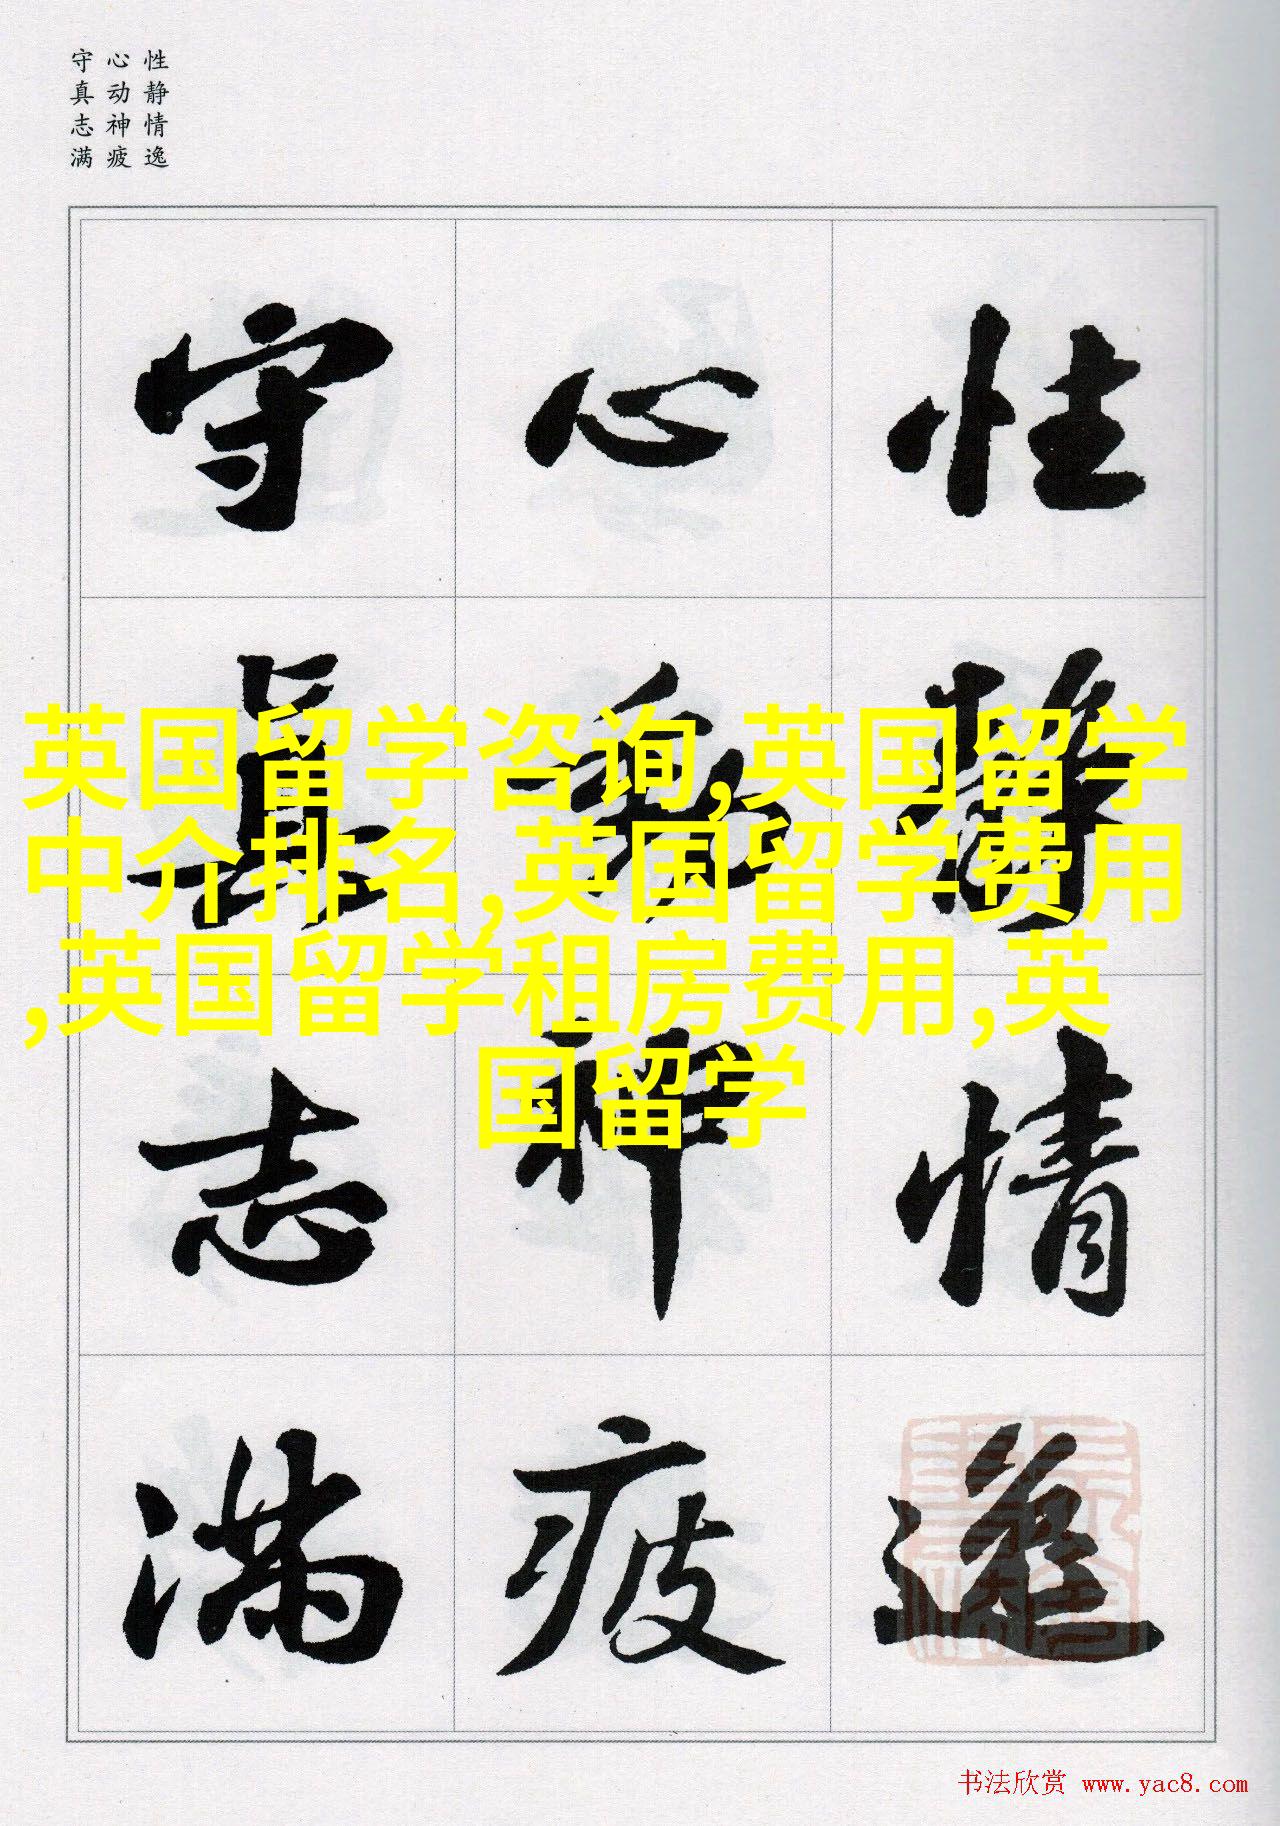 性静情逸
心动神疲
守真志满
性静情逸
心動神疲
守真志满
英国留学咨询,英国留学
中介排名,英国留学费用
,英国留学租房费用,英
国留学
书法欣赏 www.yac8.com